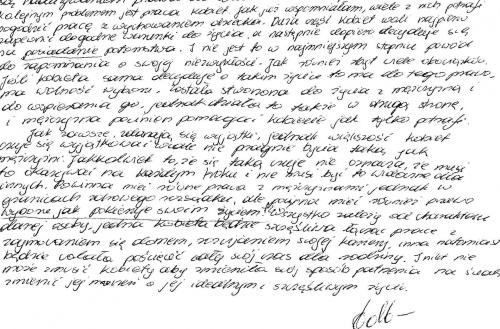 kolejnym problemem jest praca kobiet. Jak już wspomniałam, wiele z nich potrafi
pogodzić pracę z wychowaniem dziecka. Duża część kobiet woli najpierw
zapewnić dogodne warunki do życia, a następnie dopiero decyduje się
na posiadanie potomstwa. I nie jest to w najmniejszym stopniu powód
do zapominania o swojej niezwykłości. Jak również zbyt wiele obowiązków.
Jeśli kobieta sama decyduje o takim życiu to ma do tego prawo,
ma wolność wyboru. Została stworzona do życia z mężczyzną i
do wspierania go, jednak działa to także w drugą stronę,
i mężczyzna powinien pomagać kobiecie jak tylko potrafi.
Jak zawsze, zdarzają się wyjątki, jednak większość kobiet
czuje się wyjątkowa i wcale nie pragnie bycia taką, jak
mężczyźni. Jakkolwiek to, że się taką czuje nie oznacza, że musi
to okazywać na każdym kroku i nie musi być to widoczne dla
innych. Powinna mieć równe prawa z mężczyznami, jednak w
granicach zdrowego rozsądku, ale powinna mieć również prawo
wyboru jak pokieruje swoim życiem. Wszystko zależy od charakteru
danej osoby, jedna kobieta będzie szczęśliwa łącząc pracę z
zajmowaniem się domem, rozwijaniem swojej kariery, inna natomiast
będzie wolała poświęcić cały swój czas dla rodziny. I nikt nie
może zmusić kobiety aby zmieniła swój sposób patrzenia na świat,
zmienić jej marzeń o jej idealnym i szczęśliwym życiu.